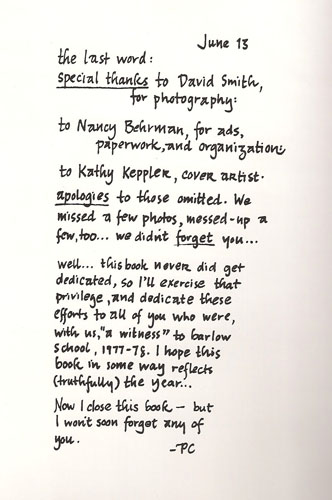 June 13
the last word:
special thanks to David Smith,
for photography:
to Nancy Behrman, for ads,
paperwork, and organization;
to Kathy Keppler, cover artist.
apologies to those omitted. We
missed a few photos, messed-up a
few, too... we didn't forget you...
well... this book never did get
dedicated, so I'll exercise that
privilege, and dedicate these
efforts to all of you who were,
with us, "a witness" to barlow
school, 1977-78. I hope this
book in some way reflects
(truthfully) the year...
Now I close this book — but
I won't soon forget any of
you.
-PC